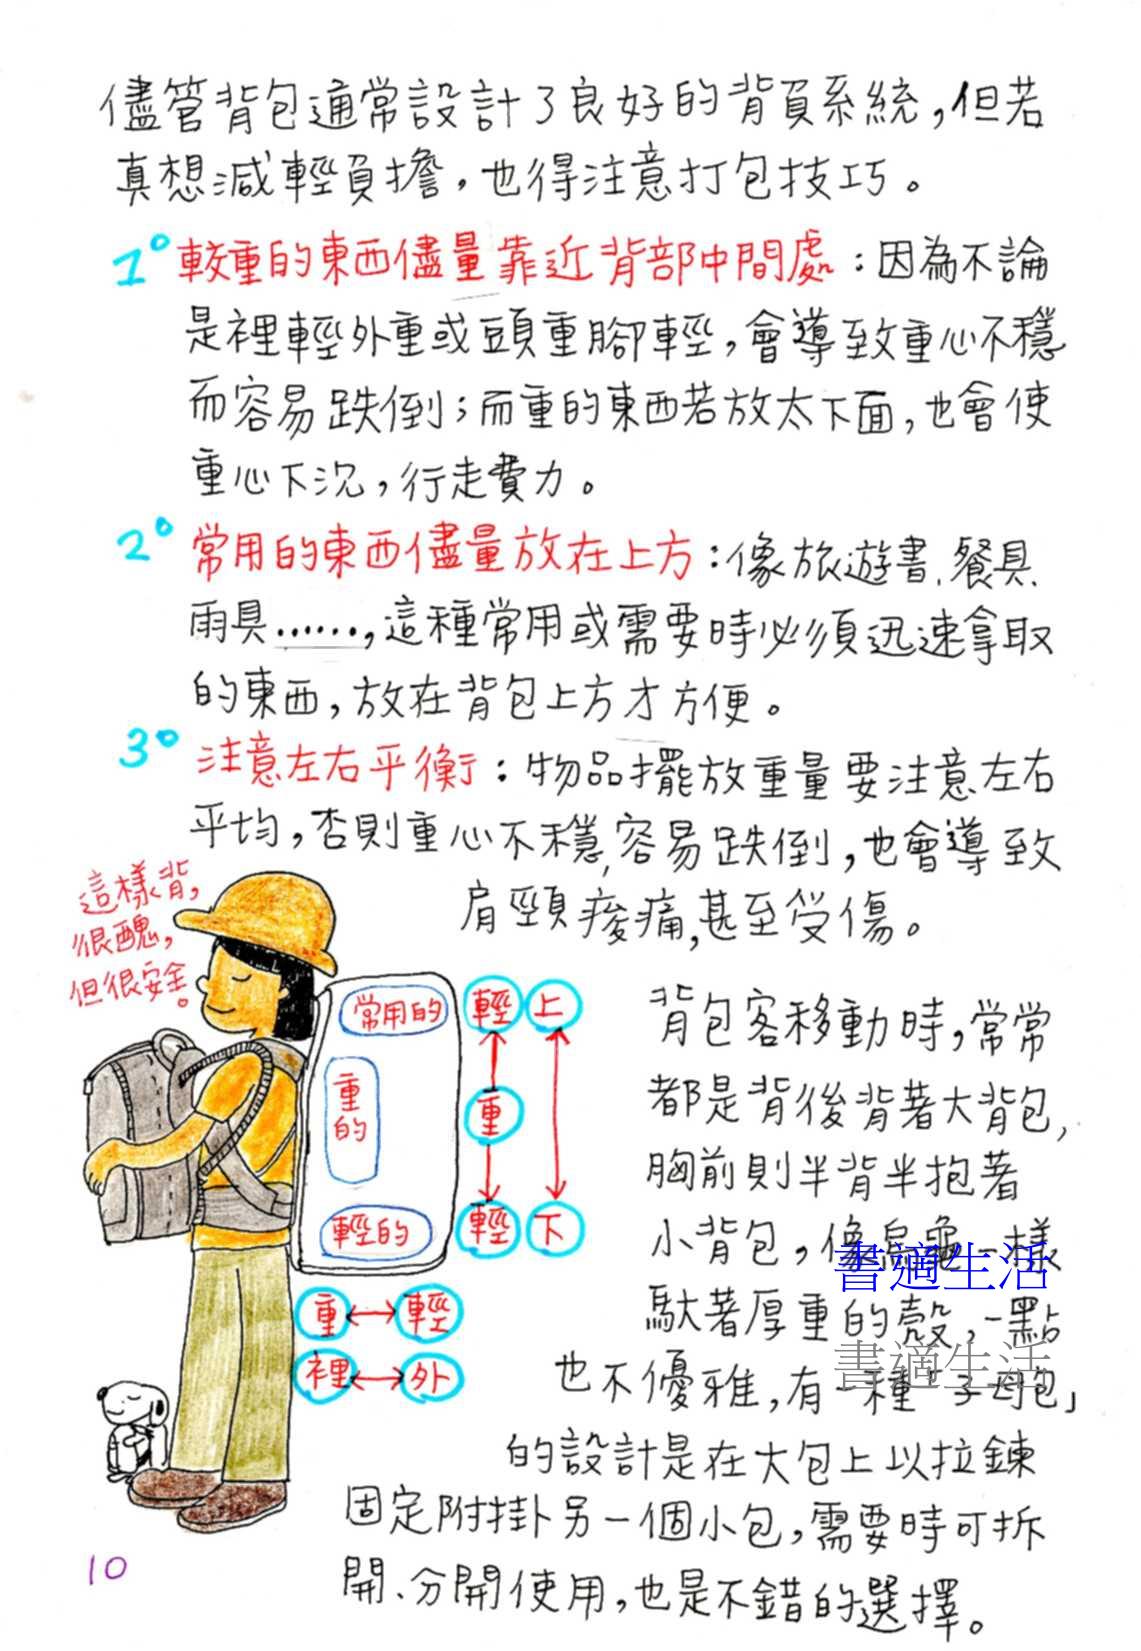 儘管背包通常設計了良好的背負系統，但若
真想減輕負擔，也得注意打包技巧。
1° 較重的東西儘量靠近背部中間處：因為不論
是裡輕外重或頭重腳輕，會導致重心不穩
而容易跌倒；而重的東西若放太下面，也會使
重心下沉，行走費力。
2° 常用的東西儘量放在上方：像旅遊書、餐具、
雨具……，這種常用或需要時必須迅速拿取
的東西，放在背包上方才方便。
3° 注意左右平衡：物品擺放重量要注意左右
平均，否則重心不穩，容易跌倒，也會導致
肩頸痠痛，甚至受傷。
這樣背，
很醜，
但很安全。
常用的
重的
輕的
輕 上
重
輕 下
重 輕
裡 外
背包客移動時，常常
都是背後背著大背包，
胸前則半背半抱著
小背包，像烏龜一樣
馱著厚重的殼，一點
也不優雅，有一種「子母包」
的設計是在大包上以拉鍊
固定附掛另一個小包，需要時可拆
開、分開使用，也是不錯的選擇。
書適生活
書適生活
10